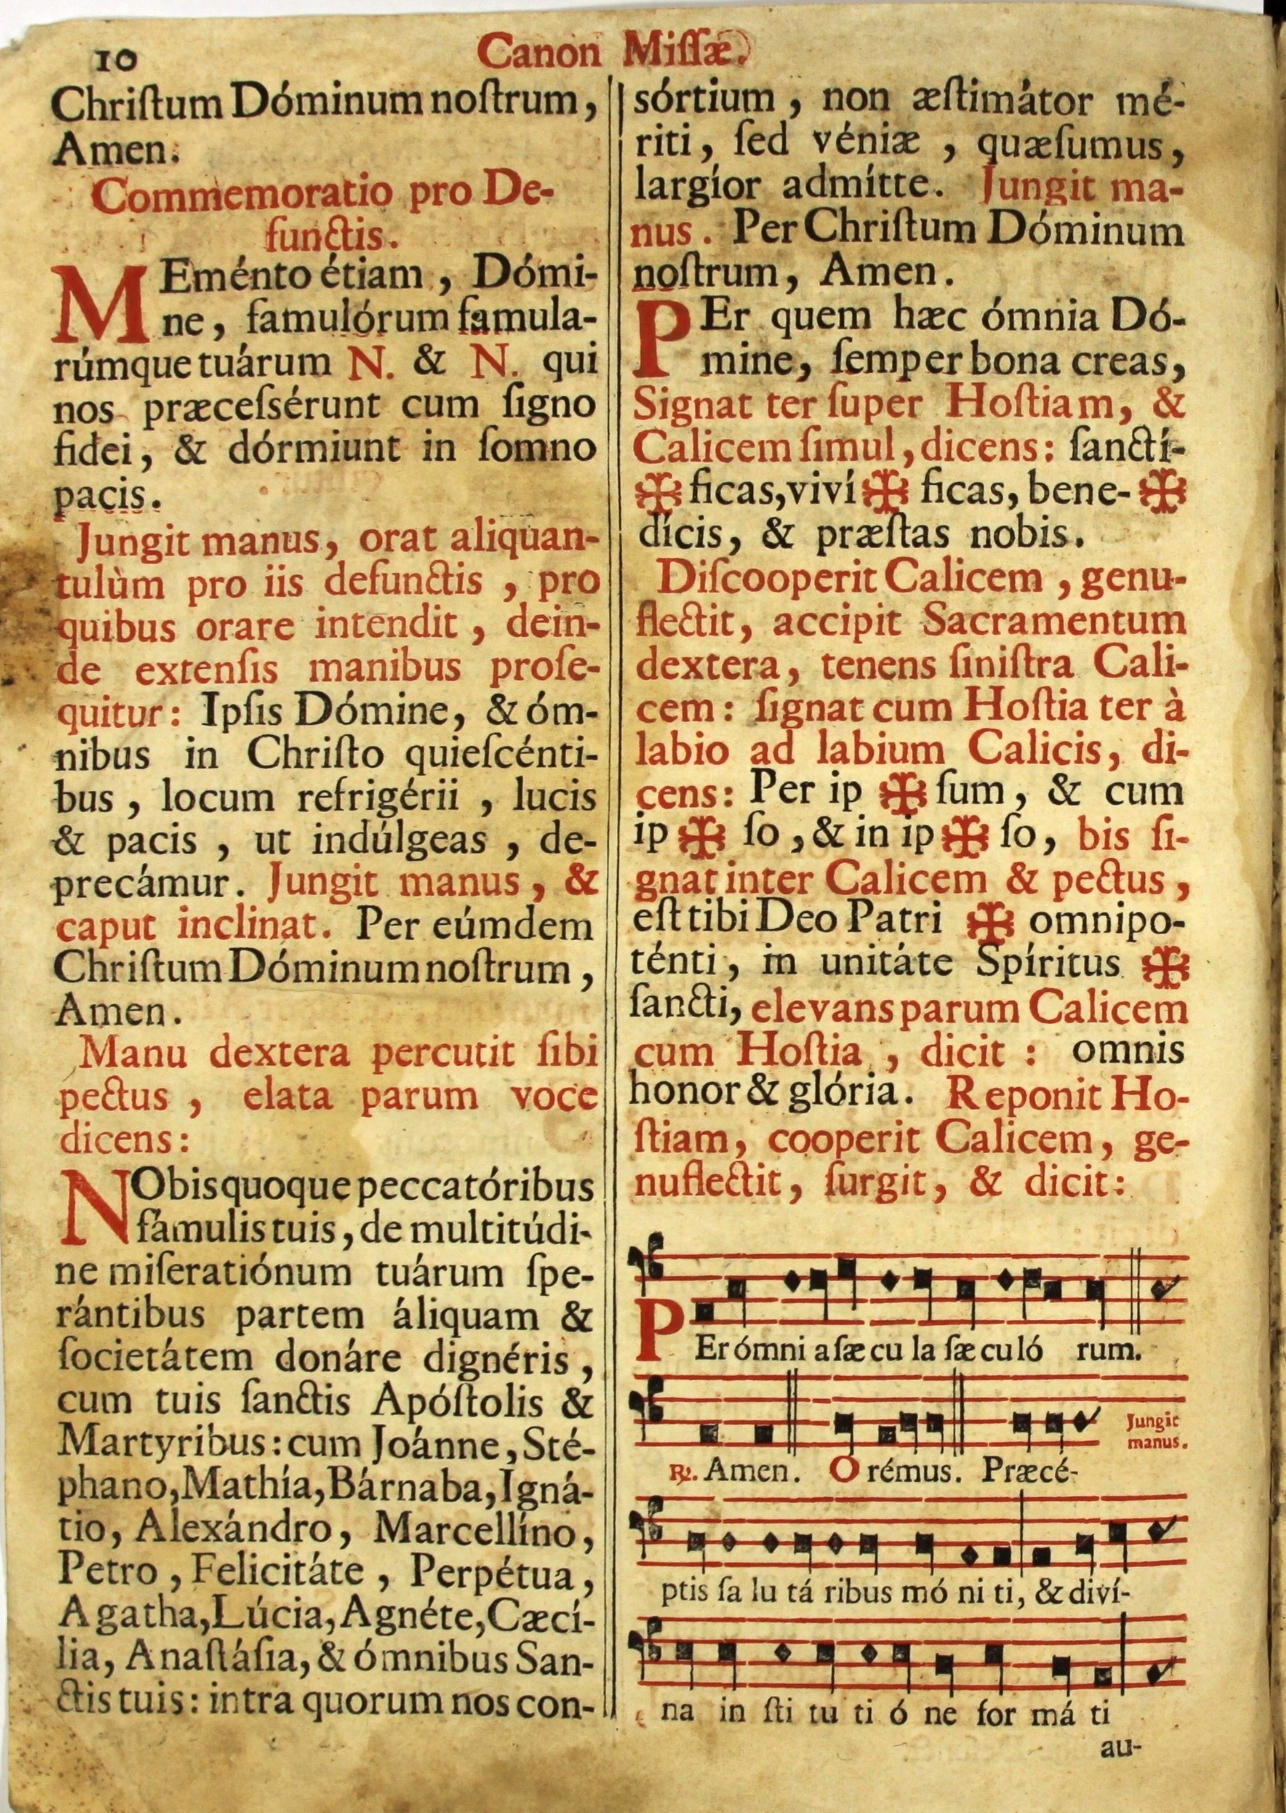 10
Canon Miſſæ.
Chriſtum Dóminum noſtrum,
Amen.
Commemoratio pro De-
functis.
MEménto étiam, Dómi-
ne, famulórum famula-
rúmque tuárum N. & N. qui
nos præceſsérunt cum ſigno
fidei, & dórmiunt in ſomno
pacis.
Jungit manus, orat aliquan-
tulùm pro iis defunctis, pro
quibus orare intendit, dein-
de extenſis manibus proſe-
quitur: Ipſis Dómine, & óm-
nibus in Chriſto quieſcénti-
bus, locum refrigérii, lucis
& pacis, ut indúlgeas, de-
precámur. Jungit manus, &
caput inclinat. Per eúmdem
Chriſtum Dóminum noſtrum,
Amen.
Manu dextera percutit ſibi
pectus, elata parum voce
dicens:
NObis quoque peccatóribus
fámulis tuis, de multitúdi-
ne miſeratiónum tuárum ſpe-
rántibus partem áliquam &
ſocietátem donáre dignéris,
cum tuis ſanctis Apóſtolis &
Martyribus: cum Joánne, Sté-
phano, Mathía, Bárnaba, Igná-
tio, Alexándro, Marcellíno,
Petro, Felicitáte, Perpétua,
Agatha, Lúcia, Agnéte, Cæcí-
lia, Anaſtáſia, & ómnibus San-
ctis tuis: intra quorum nos con-
ſórtium, non æſtimátor mé-
riti, ſed véniæ, quæſumus,
largíor admítte. Jungit ma-
nus. Per Chriſtum Dóminum
noſtrum, Amen.
PEr quem hæc ómnia Dó-
mine, ſemper bona creas,
Signat ter ſuper Hoſtiam, &
Calicem ſimul, dicens: ſanctí-
✠ ficas, viví ✠ ficas, bene- ✠
dícis, & præſtas nobis.
Diſcooperit Calicem, genu-
flectit, accipit Sacramentum
dextera, tenens ſiniſtra Cali-
cem: ſignat cum Hoſtia ter à
labio ad labium Calicis, di-
cens: Per ip ✠ ſum, & cum
ip ✠ ſo, & in ip ✠ ſo, bis ſi-
gnat inter Calicem & pectus,
eſt tibi Deo Patri ✠ omnipo-
ténti, in unitáte Spíritus ✠
ſancti, elevans parum Calicem
cum Hoſtia, dicit: omnis
honor & glória. Reponit Ho-
ſtiam, cooperit Calicem, ge-
nuflectit, ſurgit, & dicit:
PEr ómni a ſæ cu la ſæ cu ló rum.
Jungit
manus.
℟. Amen. O rémus. Præcé-
ptis ſa lu tá ribus mó ni ti, & diví-
na in ſti tu ti ó ne for má ti
au-